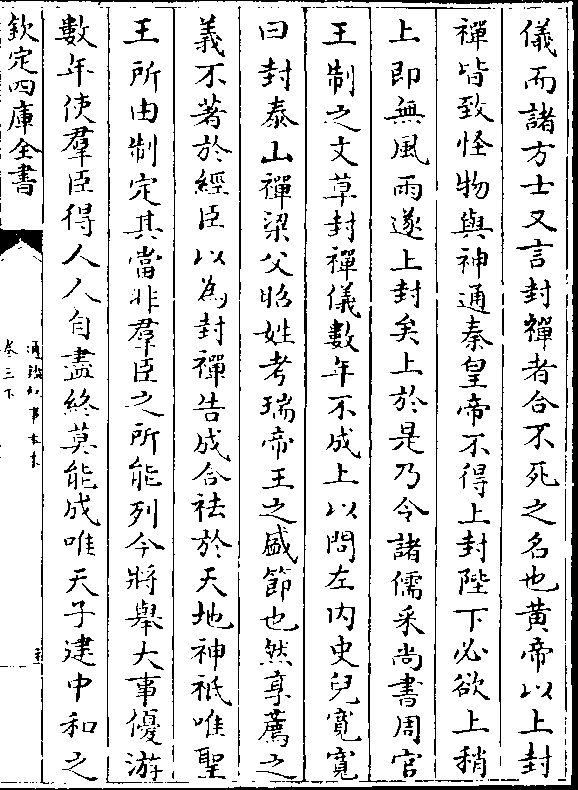 儀而諸方士又言封禪者合不死之名也黃帝以上封
禪皆致怪物與神通秦皇帝不得上封陛下必欲上稍
上即無風雨遂上封矣上於是乃令諸儒采尚書周官
王制之文草封禪儀數年不成上以問左內史兒寬寬
曰封泰山禪梁父昭姓考瑞帝王之盛節也然享薦之
義不著於經臣以為封禪告成合祛於天地神祇唯聖
王所由制定其當非羣臣之所能列今將舉大事優游
數年使羣臣得人人自盡終莫能成唯天子建中和之
欽定四庫全書
通鑑紀事本末
卷三下